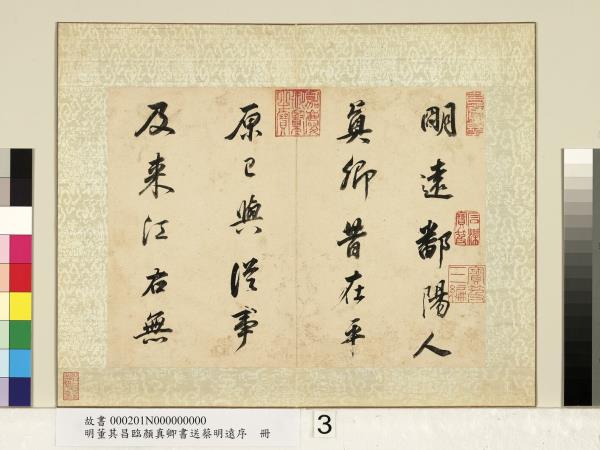 明遠鄱陽人
真卿昔在平
原已與從事
及來江右無
嘉慶御覽之寶
故書 000201N000000000
明董其昌臨顏真卿書送蔡明遠序 冊
3